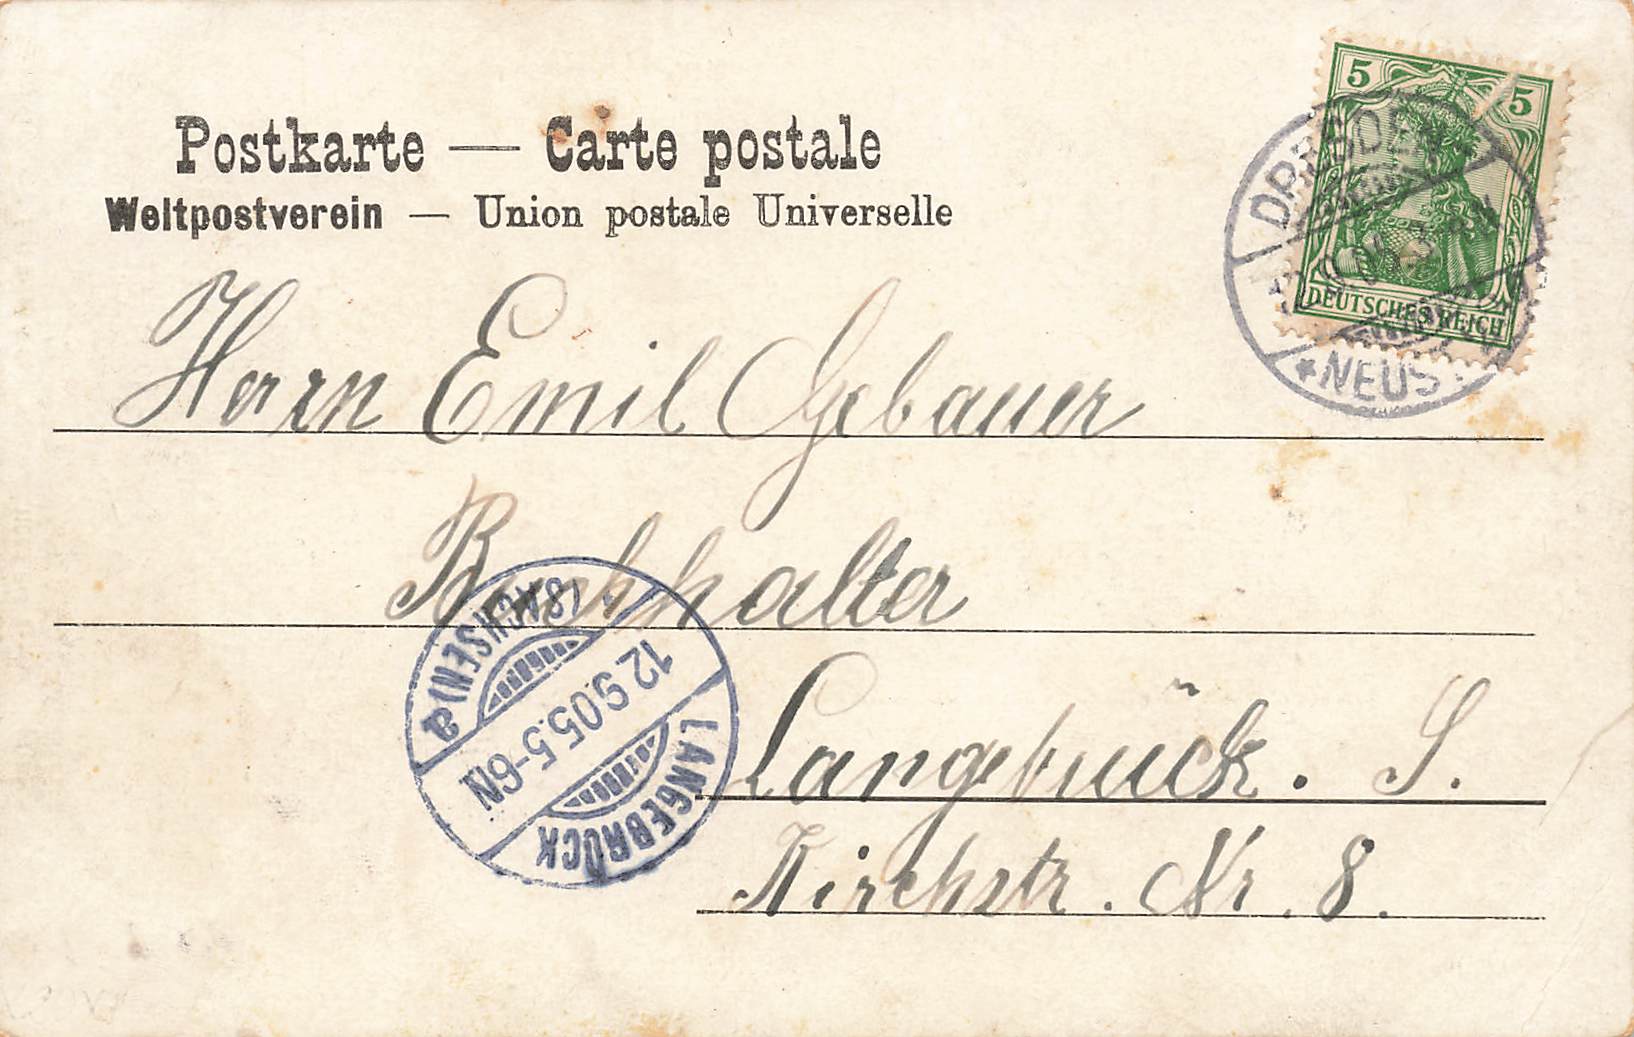 Postkarte — Carte postale
Weltpostverein — Union postale Universelle
5 5
DEUTSCHES REICH
DRESDEN
*NEUS
Herrn Emil Gebauer
Buchhalter
Langebrück. S.
Kirchstr. Nr. 8.
LANGEBRÜCK
12.9.05.5-6N
(SACHSEN) a